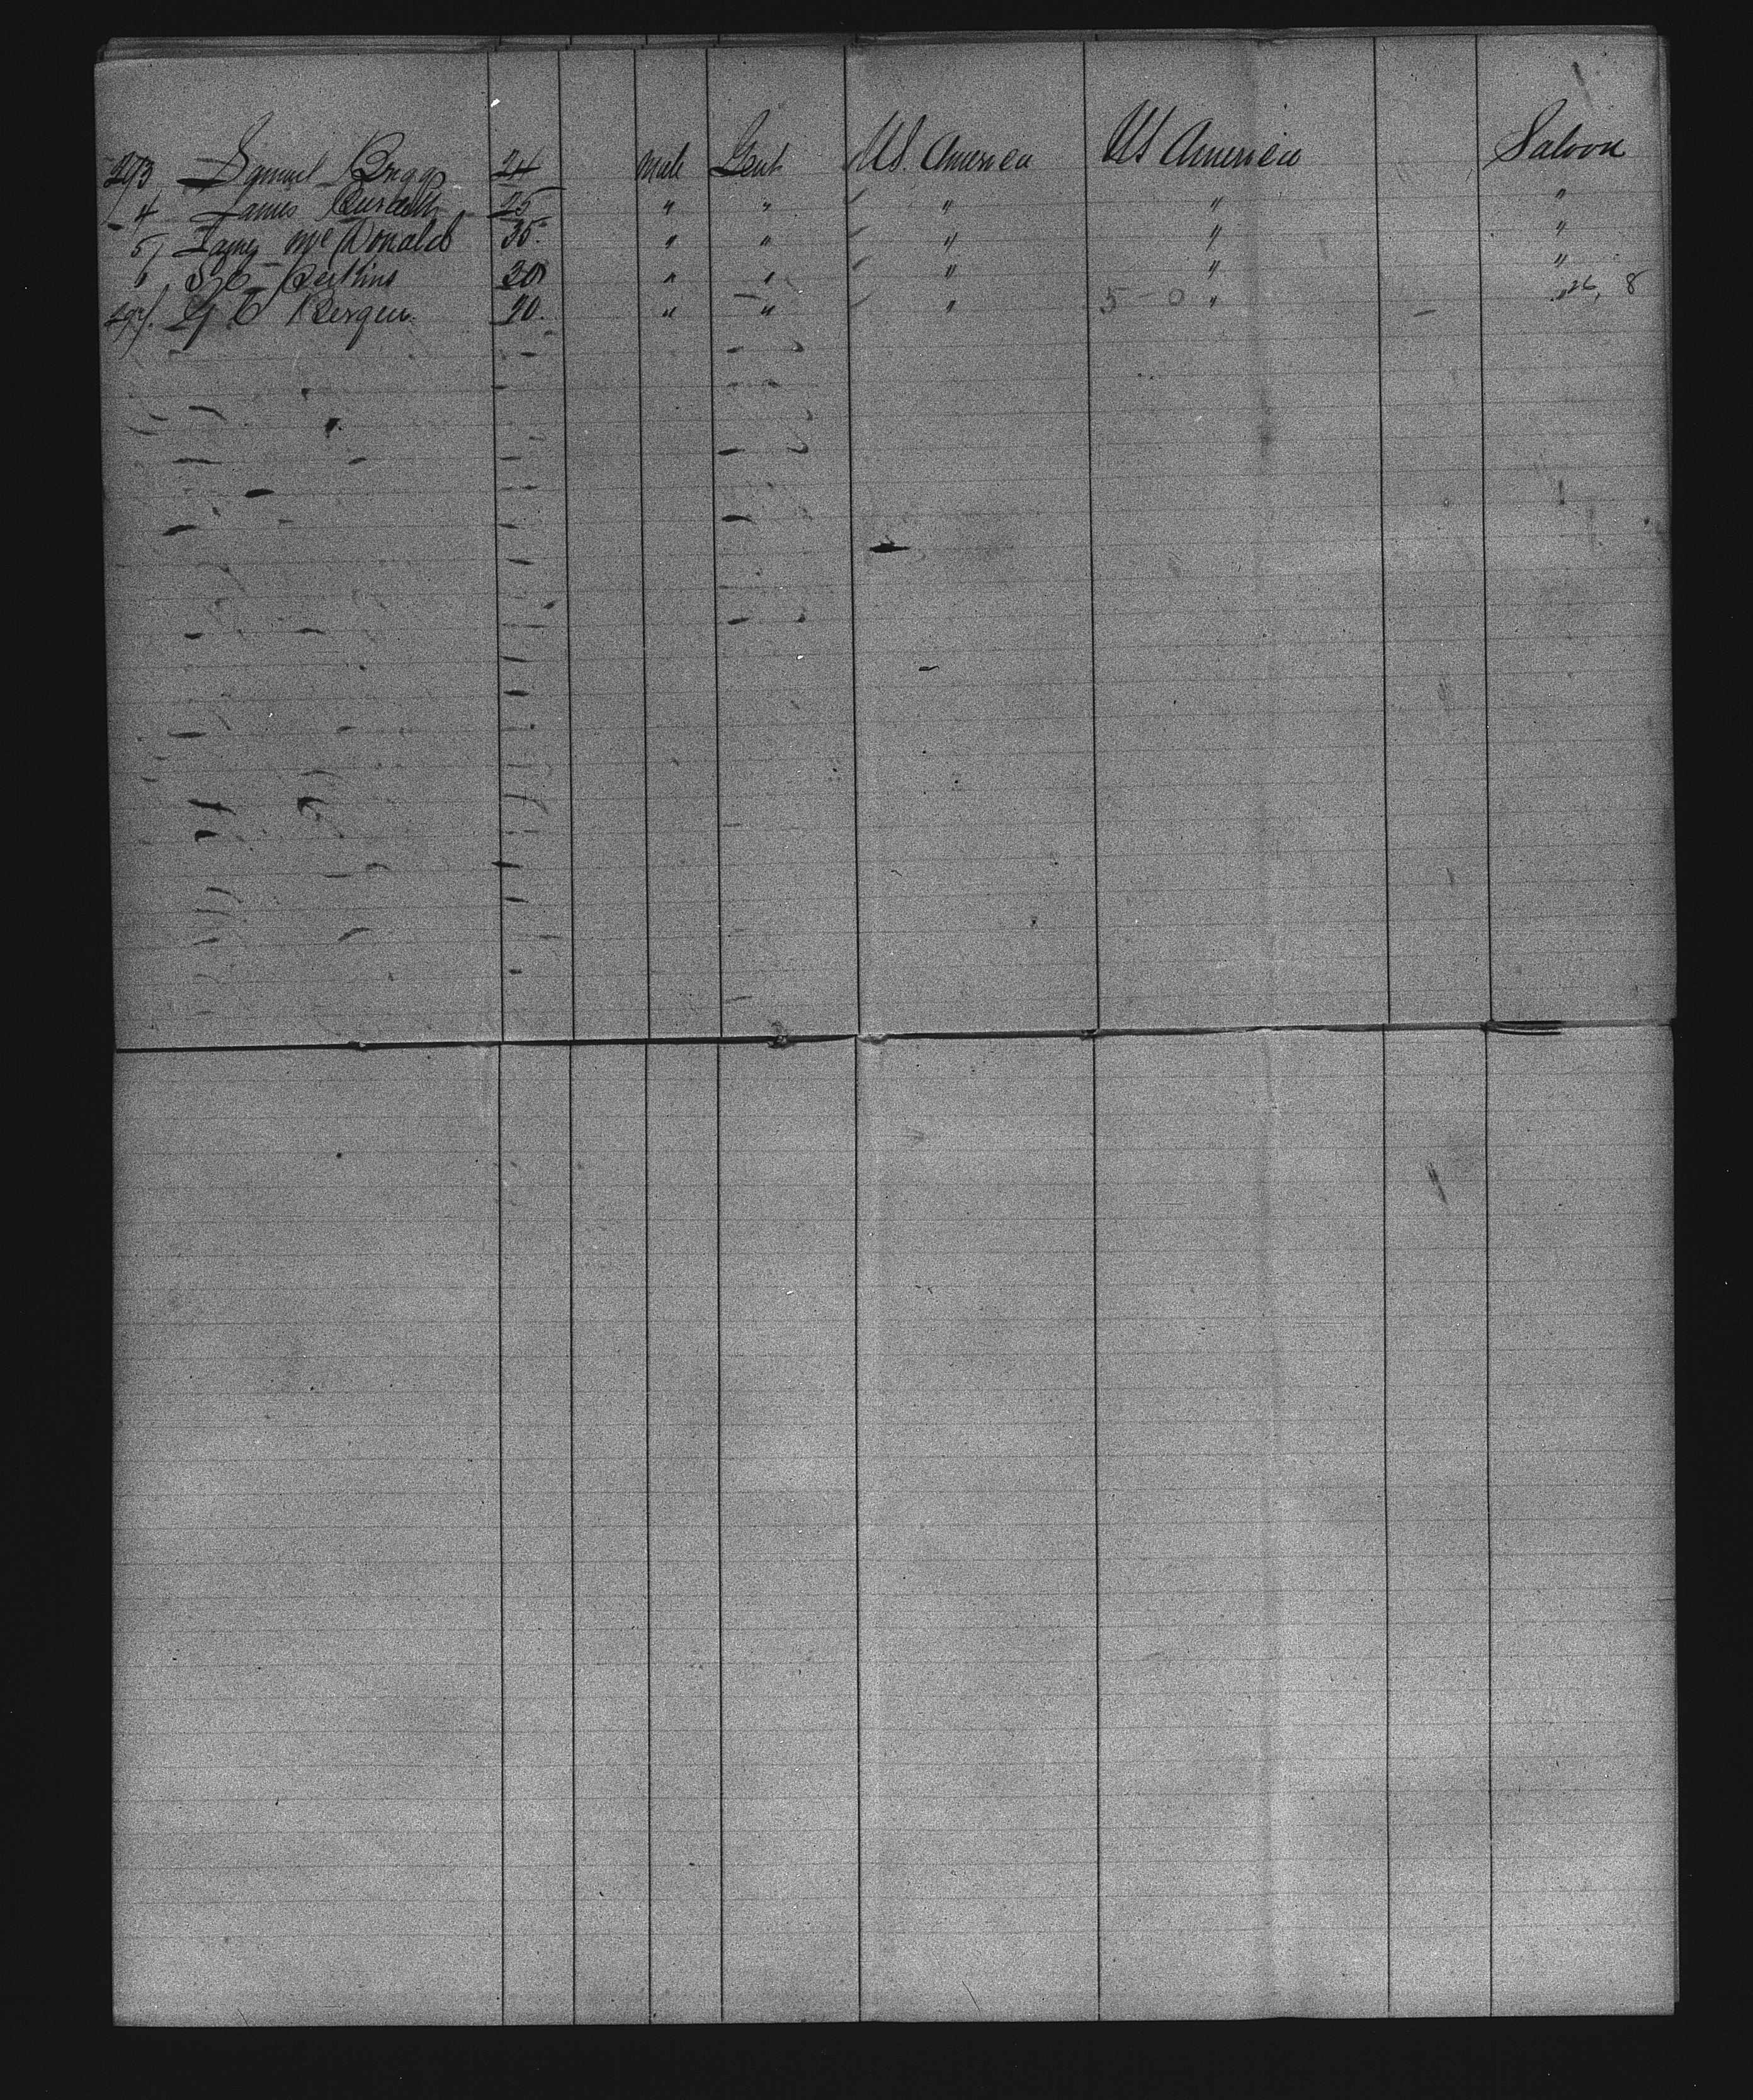 293 Samuel Brigg 24 Male Gent U.S. America US America Saloon
4 James 25 " " " " "
5 James McDonald 35. " " " " "
" Perkins 30 " " " " "
297. G. C. Bergen 40. " " " 5-0 " " 26, 8